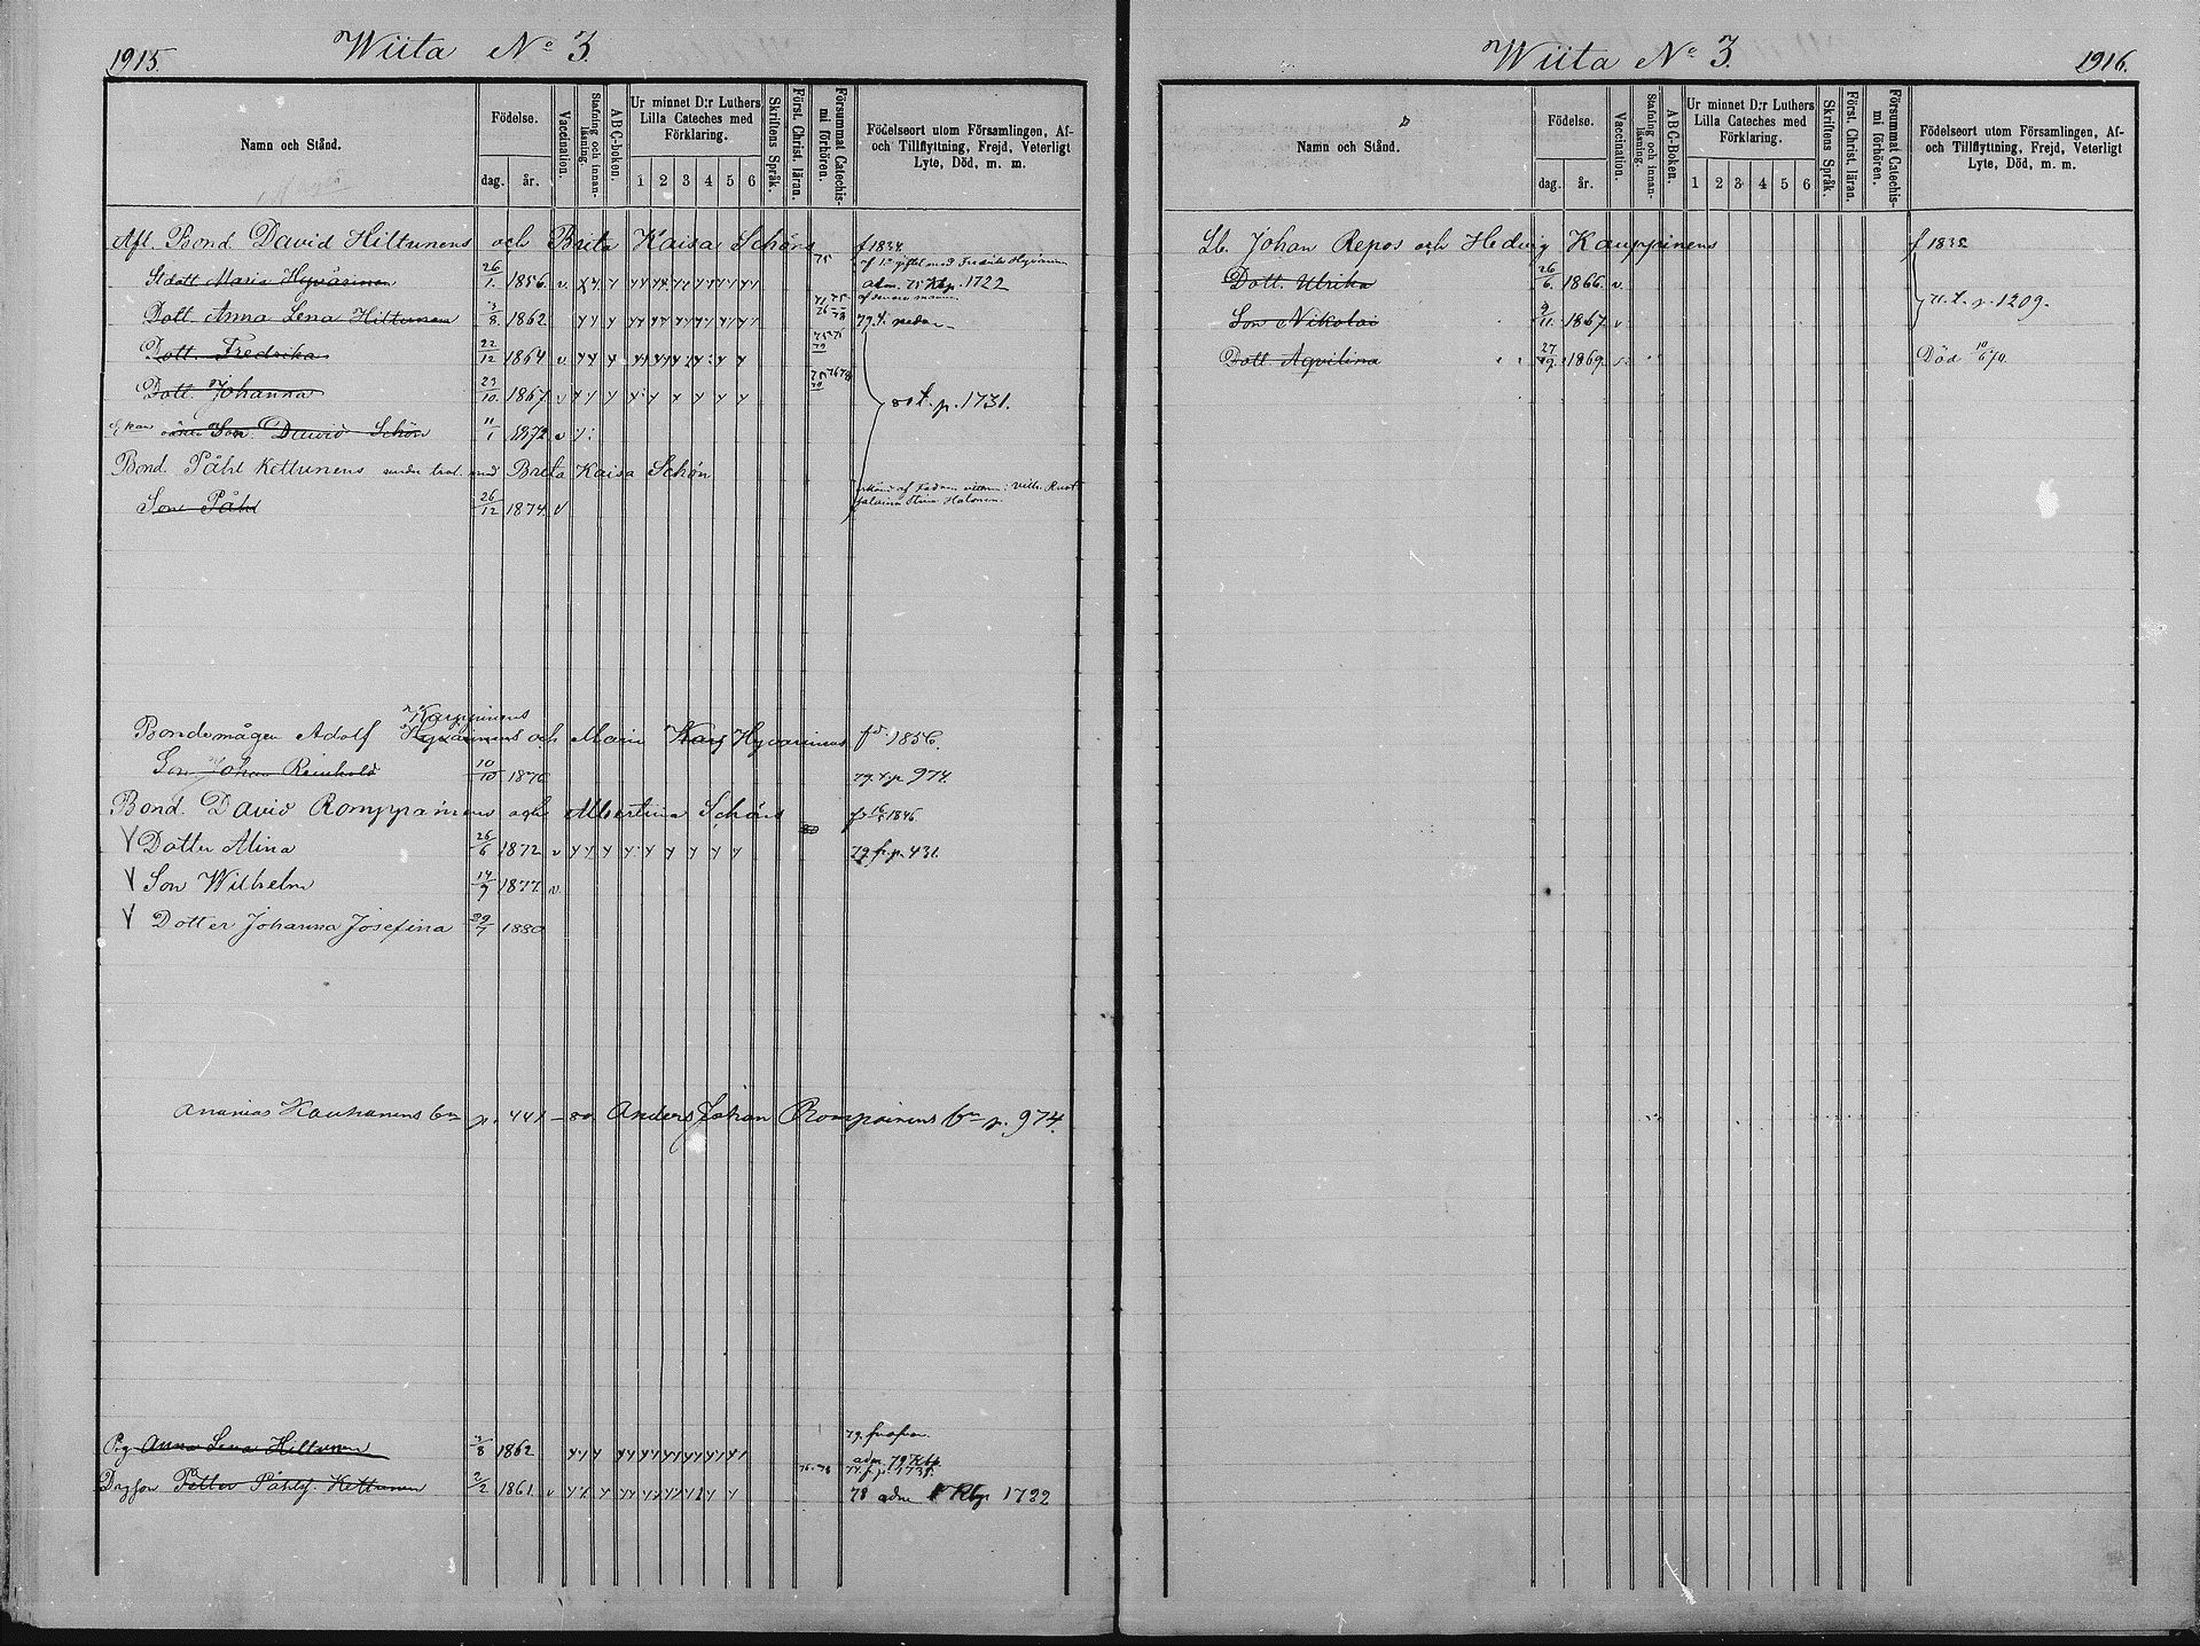 1915.
Wiita No 3.
Namn och Stånd.
Födelse.
dag.
år.
Vaccination.
Stafning och innan-läsning.
ABC-boken.
Ur minnet D:r Luthers Lilla Cateches med Förklaring.
1 2 3 4 5 6
Skriftens Språk.
Först. Christ. läran.
Försummat Catechis-mi förhören.
Födelseort utom Församlingen, Af- och Tillflyttning, Frejd, Veterligt Lyte, Död, m. m.
Afl. Bond. David Hiltunens och Brita Kaisa Schöns f 1834
Stdott Maria Hyvärinen 26/1. 1856. v. 75 af 1a giftet med Fredrik Hyvärinen
adm. 75 Kbp. 1722
af senare mannen.
Dott. Anna Lena Hiltunen 3/8. 1862 79 t. nedan
Dott. Fredrika 22/12 1864 v
Dott. Johanna 23/10. 1867 v 80 t. p. 1731.
Son David Schön 11/1 1872 v
Bond. Påhl Kettunens med Brita Kaisa Schön
Son Påhl 26/12 1874 v
Karppinens
Bondemågen Adolf Hyvärinens och Maria Karp Hyvärinens fd. 1856.
Son Johan Reinhold 10/10 1876 79. t. p 974.
Bond. David Romppainens och Albertina Schöns 1846
V Dotter Alina 26/6 1872 v 79 fr. p. 431.
V Son Wilhelm 14/9 1877 v.
V Dotter Johanna Josefina 29/7 1880
Ananias Kauhanens bn p. 441 – 80. Anders Johan Romppainens bn p. 974.
79. fr ofvan.
Pig Anna Lena Hiltunen 3/8 1862 adm. 79 Kbp.
Drgson Petter Påhlss. Kettunen 2/2 1861 v 76. 78 74. f. p. 1731.
78 adm Kbp 1722
Wiita No 3.
1916.
Namn och Stånd.
Födelse.
dag.
år.
Vaccination.
Stafning och innan-läsning.
ABC-Boken.
Ur minnet D:r Luthers Lilla Cateches med Förklaring.
1 2 3 4 5 6
Skriftens Språk.
Först. Christ. läran.
Försummat Catechis-mi förhören.
Födelseort utom Församlingen, Af- och Tillflyttning, Frejd, Veterligt Lyte, Död, m. m.
Lb. Johan Repos och Hedvig Kauppinens f 1832
Dott. Ulrika 26/6. 1866. v.
Son Nikolai 3/11. 1867. v 71. t. p. 1209.
Dott. Aqvilina 27/9. 1869. Död 10/6 70.